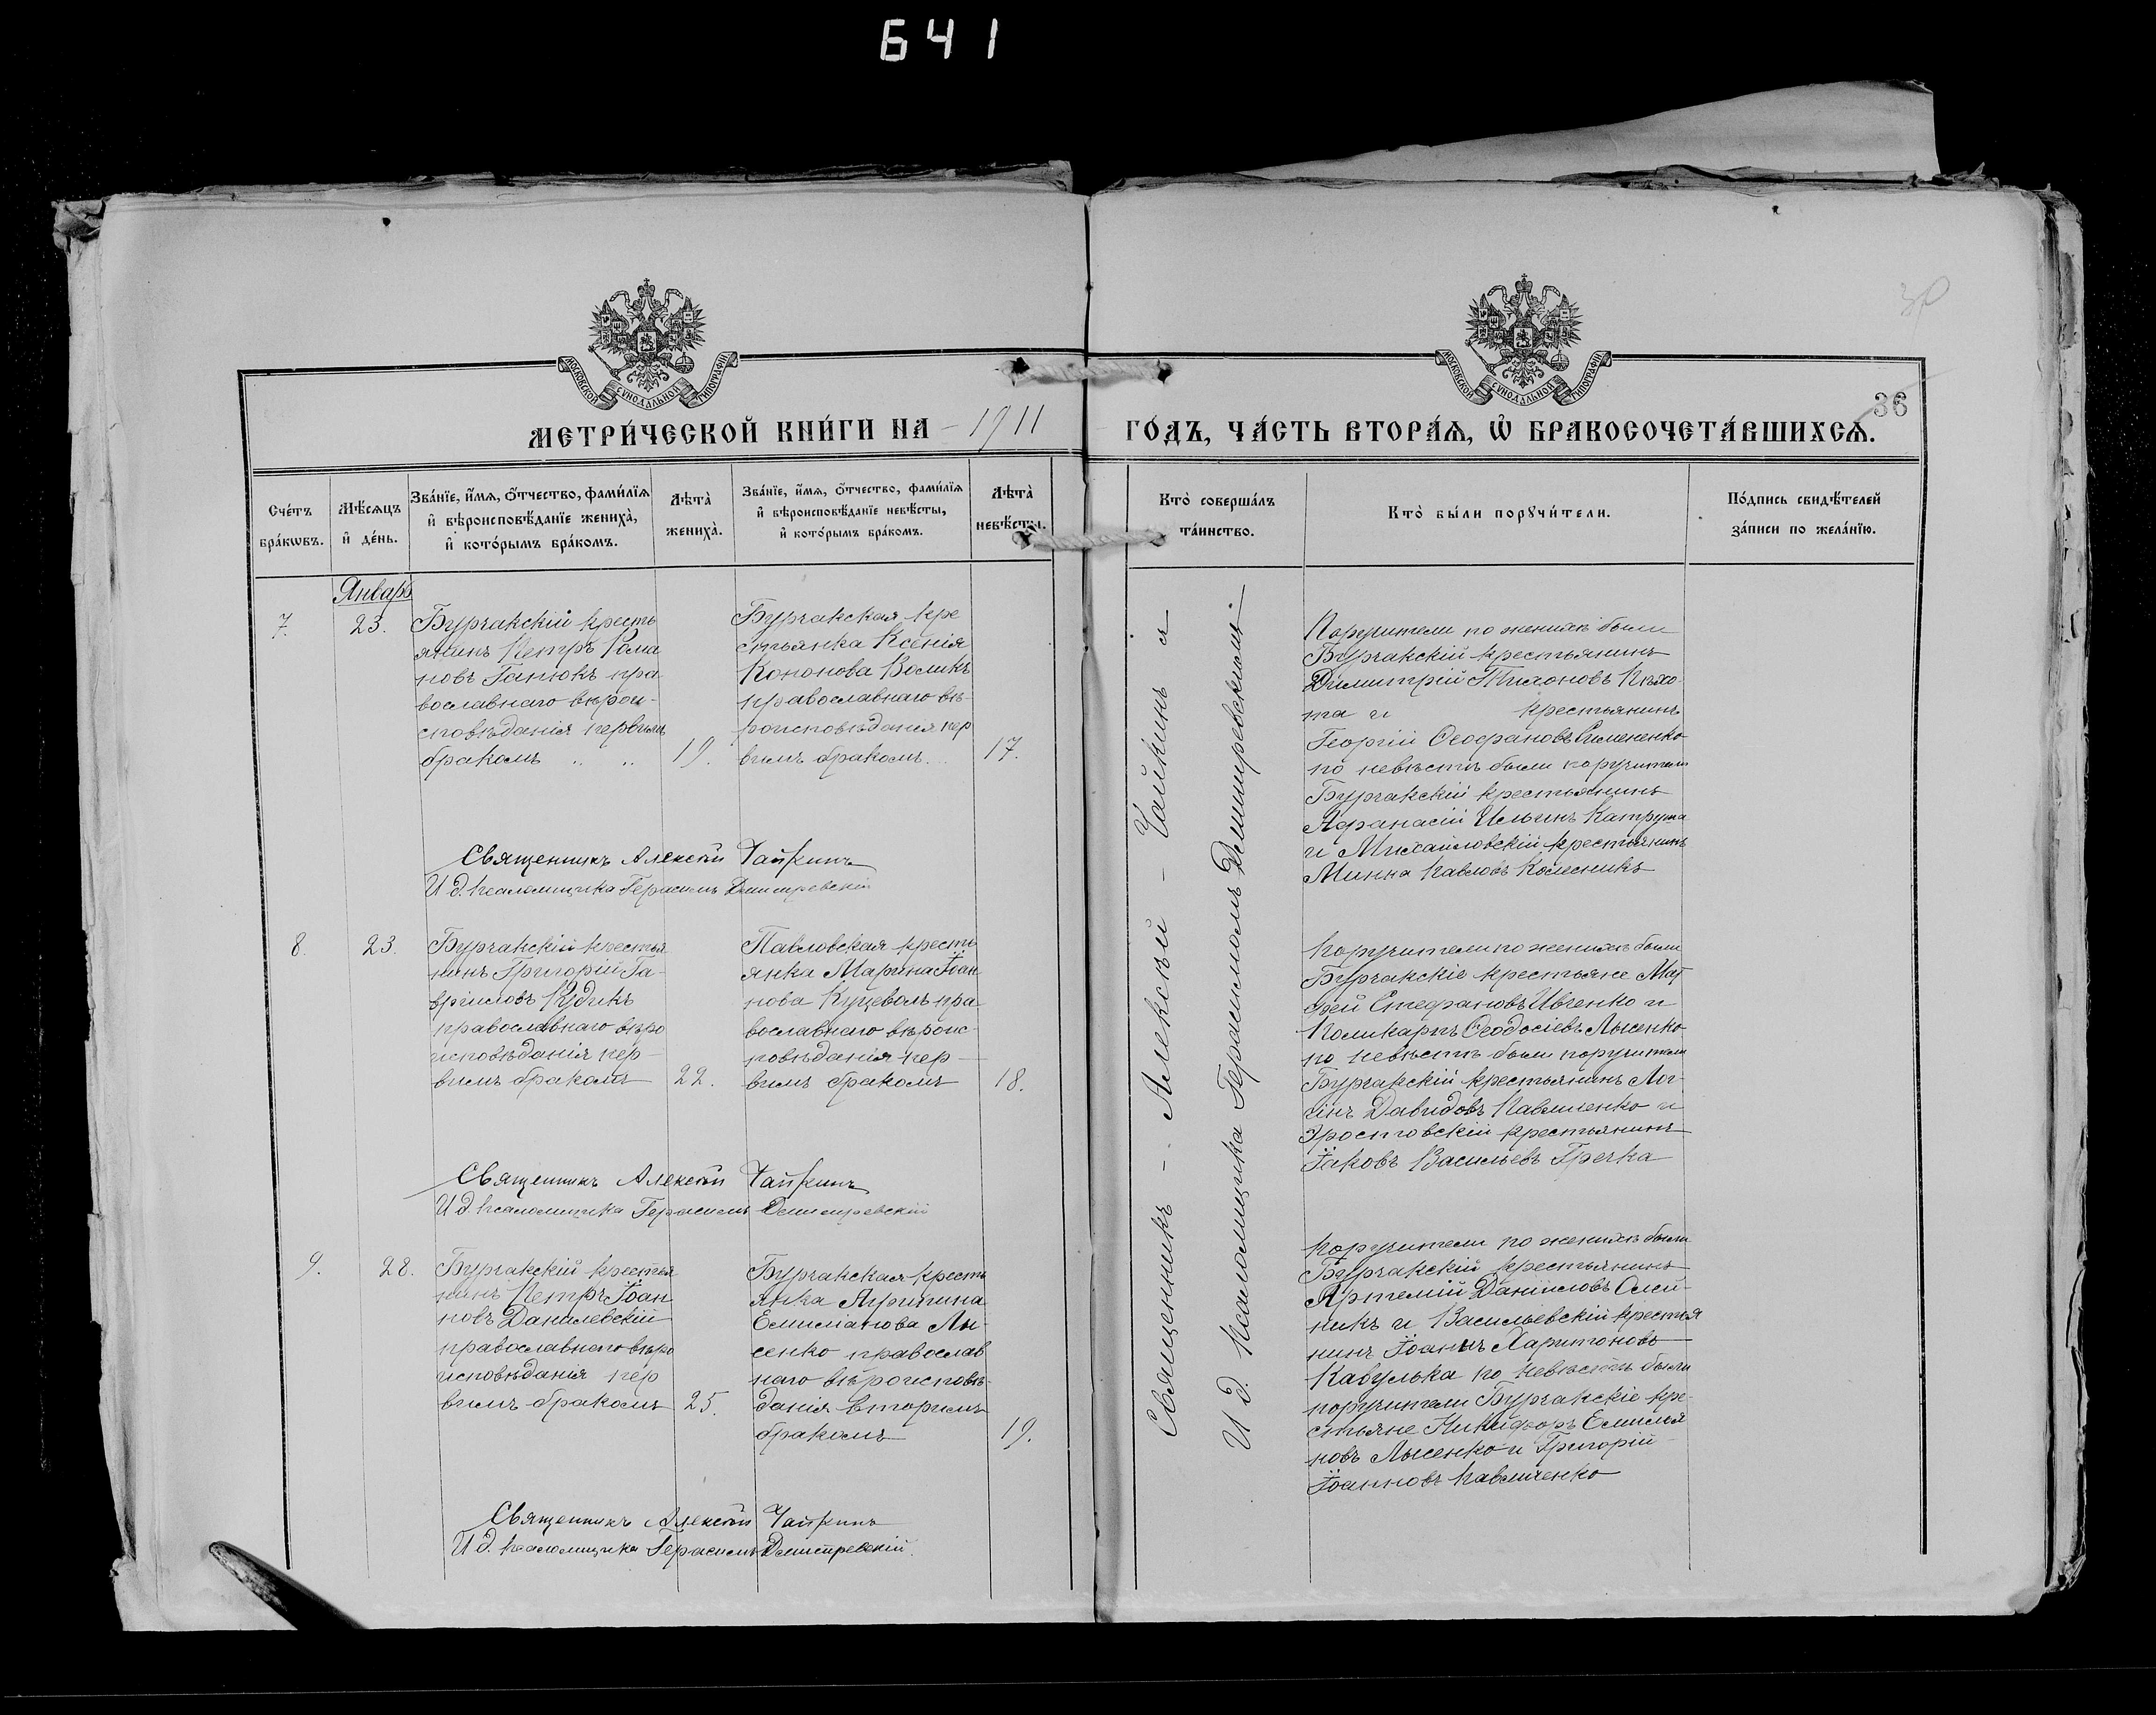 641
38
36
МОСКОВСКОЙ СѴНОДАЛЬНОЙ ТИПОГРАФІИ
МОСКОВСКОЙ СѴНОДАЛЬНОЙ ТИПОГРАФІИ
МЕТРИ́ЧЕСКОЙ КНИ́ГИ НА 1911 ГО́ДЪ, ЧА́СТЬ ВТОРА́Ѧ, Ѡ҆ БРАКОСОЧЕТА́ВШИХСѦ.
Сче́тъ
бра́кѡвъ.
Мѣ́сѧцъ
и҆ де́нь.
Зва́нїе, и҆́мѧ, ѻ҆́тчество, фами́лїѧ
и҆ вѣроисповѣ́данїе жениха̀,
и҆ кото́рымъ бра́комъ.
Лѣ́та
жениха̀.
Зва́нїе, и҆́мѧ, ѻ҆́тчество, фами́лїѧ
и҆ вѣроисповѣ́данїе невѣ́сты,
и҆ кото́рымъ бра́комъ.
Лѣ́та
невѣ́сты.
Кто̀ соверша́лъ
та́инство.
Кто̀ бы́ли порꙋчи́тели.
По́дпись свидѣ́телей
за́писи по жела́нїю.
Январь
7.
23.
Бурчакскій кресть
янинъ Петръ Рома
новъ Ганюкъ пра
вославнаго вѣрои-
сповѣданія первымъ
бракомъ " "
19.
Бурчакская кре
стьянка Ксенія
Кононова Воликъ
православнаго вѣ-
роисповѣданія пер
вымъ бракомъ
17.
Поручители по женихѣ были
Бурчакскій крестьянинъ
Димитрій Тихоновъ Пѣхо
та и крестьянинъ
Георгій Ѳеофановъ Симененко
по невѣстѣ были поручители
Бурчакскій крестьянинъ
Афанасій Ильинъ Катруша
и Михайловскій крестьянинъ
Минна Павловъ Колесникъ
Священникъ Алексѣй Чайкинъ
И д. псаломщика Герасимъ Дмитревскій
8.
23.
Бурчакскій крестья
нинъ Григорій Га-
вриловъ Кудикъ
православнаго вѣро
исповѣданія пер-
вымъ бракомъ
22.
Павловская кресть
янка Марина Іоан
нова Куцеволъ пра
вославнаго вѣроис-
повѣданія пер-
вымъ бракомъ
18.
Поручители по женихѣ были
Бурчакскіе крестьяне Мат
фей Стефановъ Ивченко и
Поликарпъ Ѳеодосіевъ Лысенко
по невѣстѣ были поручители
Бурчакскій крестьянинъ Лог-
инъ Давидовъ Павличенко и
Эростовскій крестьянинъ
Іаковъ Васильевъ Гречка
Священникъ Алексѣй Чайкинъ
И д. псаломщика Герасимъ Дмитревскій
9.
28.
Бурчакскій крестья
нинъ Петръ Іоан
новъ Данилевскій
православнаго вѣро
исповѣданія пер
вымъ бракомъ
25.
Бурчакская кресть
янка Агрипина
Емиліанова Лы-
сенко православ
наго вѣроисповѣ-
данія вторымъ
бракомъ
19.
Поручители по женихѣ были
Бурчакскій крестьянинъ
Артемій Даніиловъ Олей-
никъ и Васильевскій крестья
нинъ Іоаннъ Харитоновъ
Кабулька по невѣстѣ были
поручители Бурчакскіе кре-
стьяне Никифоръ Емилія
новъ Лысенко и Григорій
Іоанновъ Павличенко
Священникъ Алексѣй Чайкинъ
И д. псаломщика Герасимъ Дмитревскій
Священникъ - Алексѣй - Чайкинъ и
И д. Псаломщика Герасимомъ Дмитревскимъ